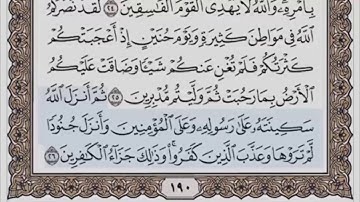 بِأَمْرِهِۦ وَٱللَّهُ لَا يَهْدِى ٱلْقَوْمَ ٱلْفَـٰسِقِينَ ٢٤ لَقَدْ نَصَرَكُمُ
ٱللَّهُ فِى مَوَاطِنَ كَثِيرَةٍ وَيَوْمَ حُنَيْنٍ إِذْ أَعْجَبَتْكُمْ
كَثْرَتُكُمْ فَلَمْ تُغْنِ عَنكُمْ شَيْـًٔا وَضَاقَتْ عَلَيْكُمُ
ٱلْأَرْضُ بِمَا رَحُبَتْ ثُمَّ وَلَّيْتُم مُّدْبِرِينَ ٢٥ ثُمَّ أَنزَلَ ٱللَّهُ
سَكِينَتَهُۥ عَلَىٰ رَسُولِهِۦ وَعَلَى ٱلْمُؤْمِنِينَ وَأَنزَلَ جُنُودًا
لَّمْ تَرَوْهَا وَعَذَّبَ ٱلَّذِينَ كَفَرُوا۟ وَذَٰلِكَ جَزَآءُ ٱلْكَـٰفِرِينَ ٢٦
١٩٠